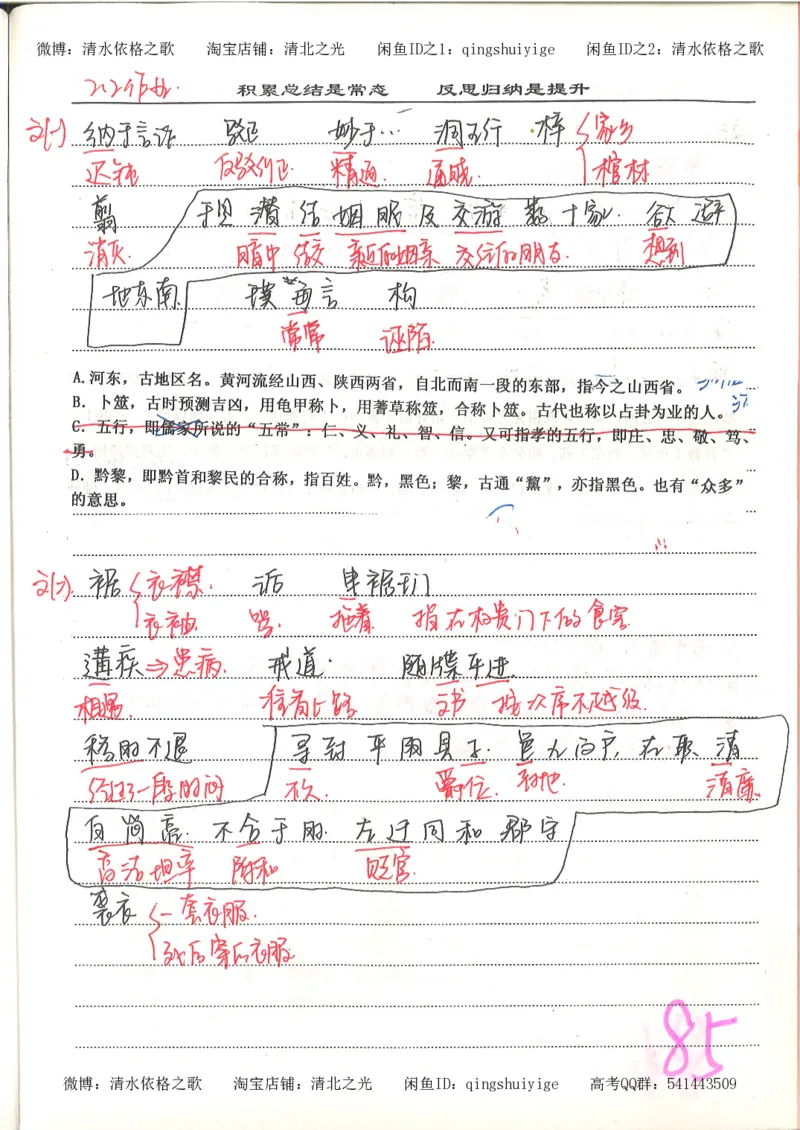 微博：清水依格之歌 淘宝店铺：清北之光 闲鱼ID之1：qingshuiyige 闲鱼ID之2：清水依格之歌
2.2作业. 积累总结是常态 反思归纳是提升
文(一) 纳于言论 驳正 妙于… 洞五行 梓 家乡
迟钝 反驳纠正 精通 通晓. 棺材
翦 于里 潜结姻眤及交游数十家. 欲避
消灭. 暗中 结交 亲近的姻亲 交往的朋友. 想到
地东南. 璞每言 构
常常 诬陷.
A.河东，古地区名。黄河流经山西、陕西两省，自北而南一段的东部，指今之山西省。
B．卜筮，古时预测吉凶，用龟甲称卜，用蓍草称筮，合称卜筮。古代也称以占卦为业的人。
C．五行，即儒家所说的“五常”：仁、义、礼、智、信。又可指孝的五行，即庄、忠、敬、笃、
勇。
D．黔黎，即黔首和黎民的合称，指百姓。黔，黑色；黎，古通“黧”，亦指黑色。也有“众多”
的意思。
文(二). 裾 衣襟. 诟 曳裾王门
衣袖. 骂. 拖着. 指在权贵门下的食客
遘疾⇒患病. 戒道. 随牒平进.
相遇. 准备上路 文书 按次序不越级.
移时不退 寻封平周县子. 邑九百户, 在职清
经过一段时间 不久. 爵位. 封地. 清廉
白简亮. 不合于时. 左迁同和郡守
高洁坦率 附和 贬官.
袭衣 一套衣服.
死后穿的衣服
85
微博：清水依格之歌 淘宝店铺：清北之光 闲鱼ID：qingshuiyige 高考QQ群：541443509